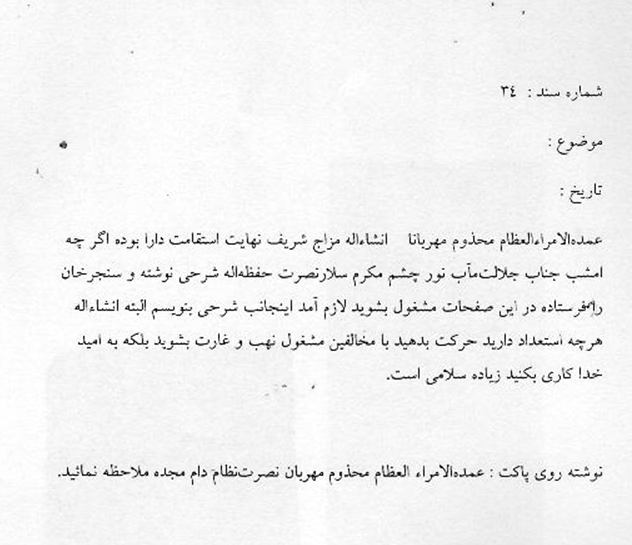 شماره سند : ٣٤
موضوع :
تاریخ :
عمده‌الامراءالعظام محذوم مهربانا انشاءاله مزاج شریف نهایت استقامت دارا بوده اگر چه
امشب جناب جلالت‌مآب نور چشم مکرم سلارنصرت حفظه‌اله شرحی نوشته و سنجرخان
را فرستاده در این صفحات مشغول بشوید لازم آمد اینجانب شرحی بنویسم البته انشاءاله
هرچه استعداد دارید حرکت بدهید با مخالفین مشغول نهب و غارت بشوید بلکه به امید
خدا کاری بکنید زیاده سلامی است.
نوشته روی پاکت : عمده‌الامراء العظام محذوم مهربان نصرت‌نظام دام مجده ملاحظه نمائید.